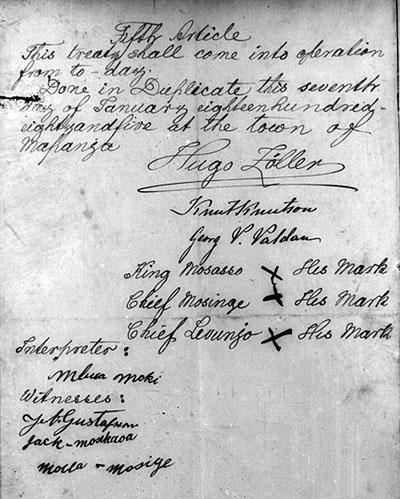 Fifth Article
This treaty shall come into operation
from to-day.
Done in Duplicate this seventh
day of January eighteenhundred-
eightyandfive at the town of
Mapanza
Hugo Zöller
Knut Knutson
Georg V. Valdau
King Mosasso X His Mark
Chief Mosinge X His Mark
Chief Levunjo X His Mark
Interpreter:
Mbua Moki
Witnesses:
Gustafson
Jack-
Mosige